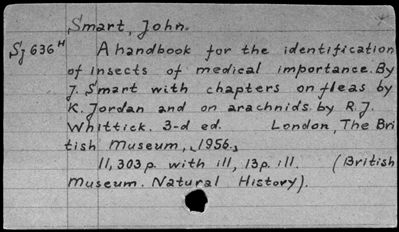 Smart, John.
Sj 636 H A handbook for the identification
of insects of medical importance. By
J. Smart with chapters on fleas by
K. Jordan and on arachnids by R.J.
Whittick. 3-d ed. London, The Bri
tish Museum, 1956.
11, 303 p. with ill, 13 p. ill. (British
Museum. Natural History).